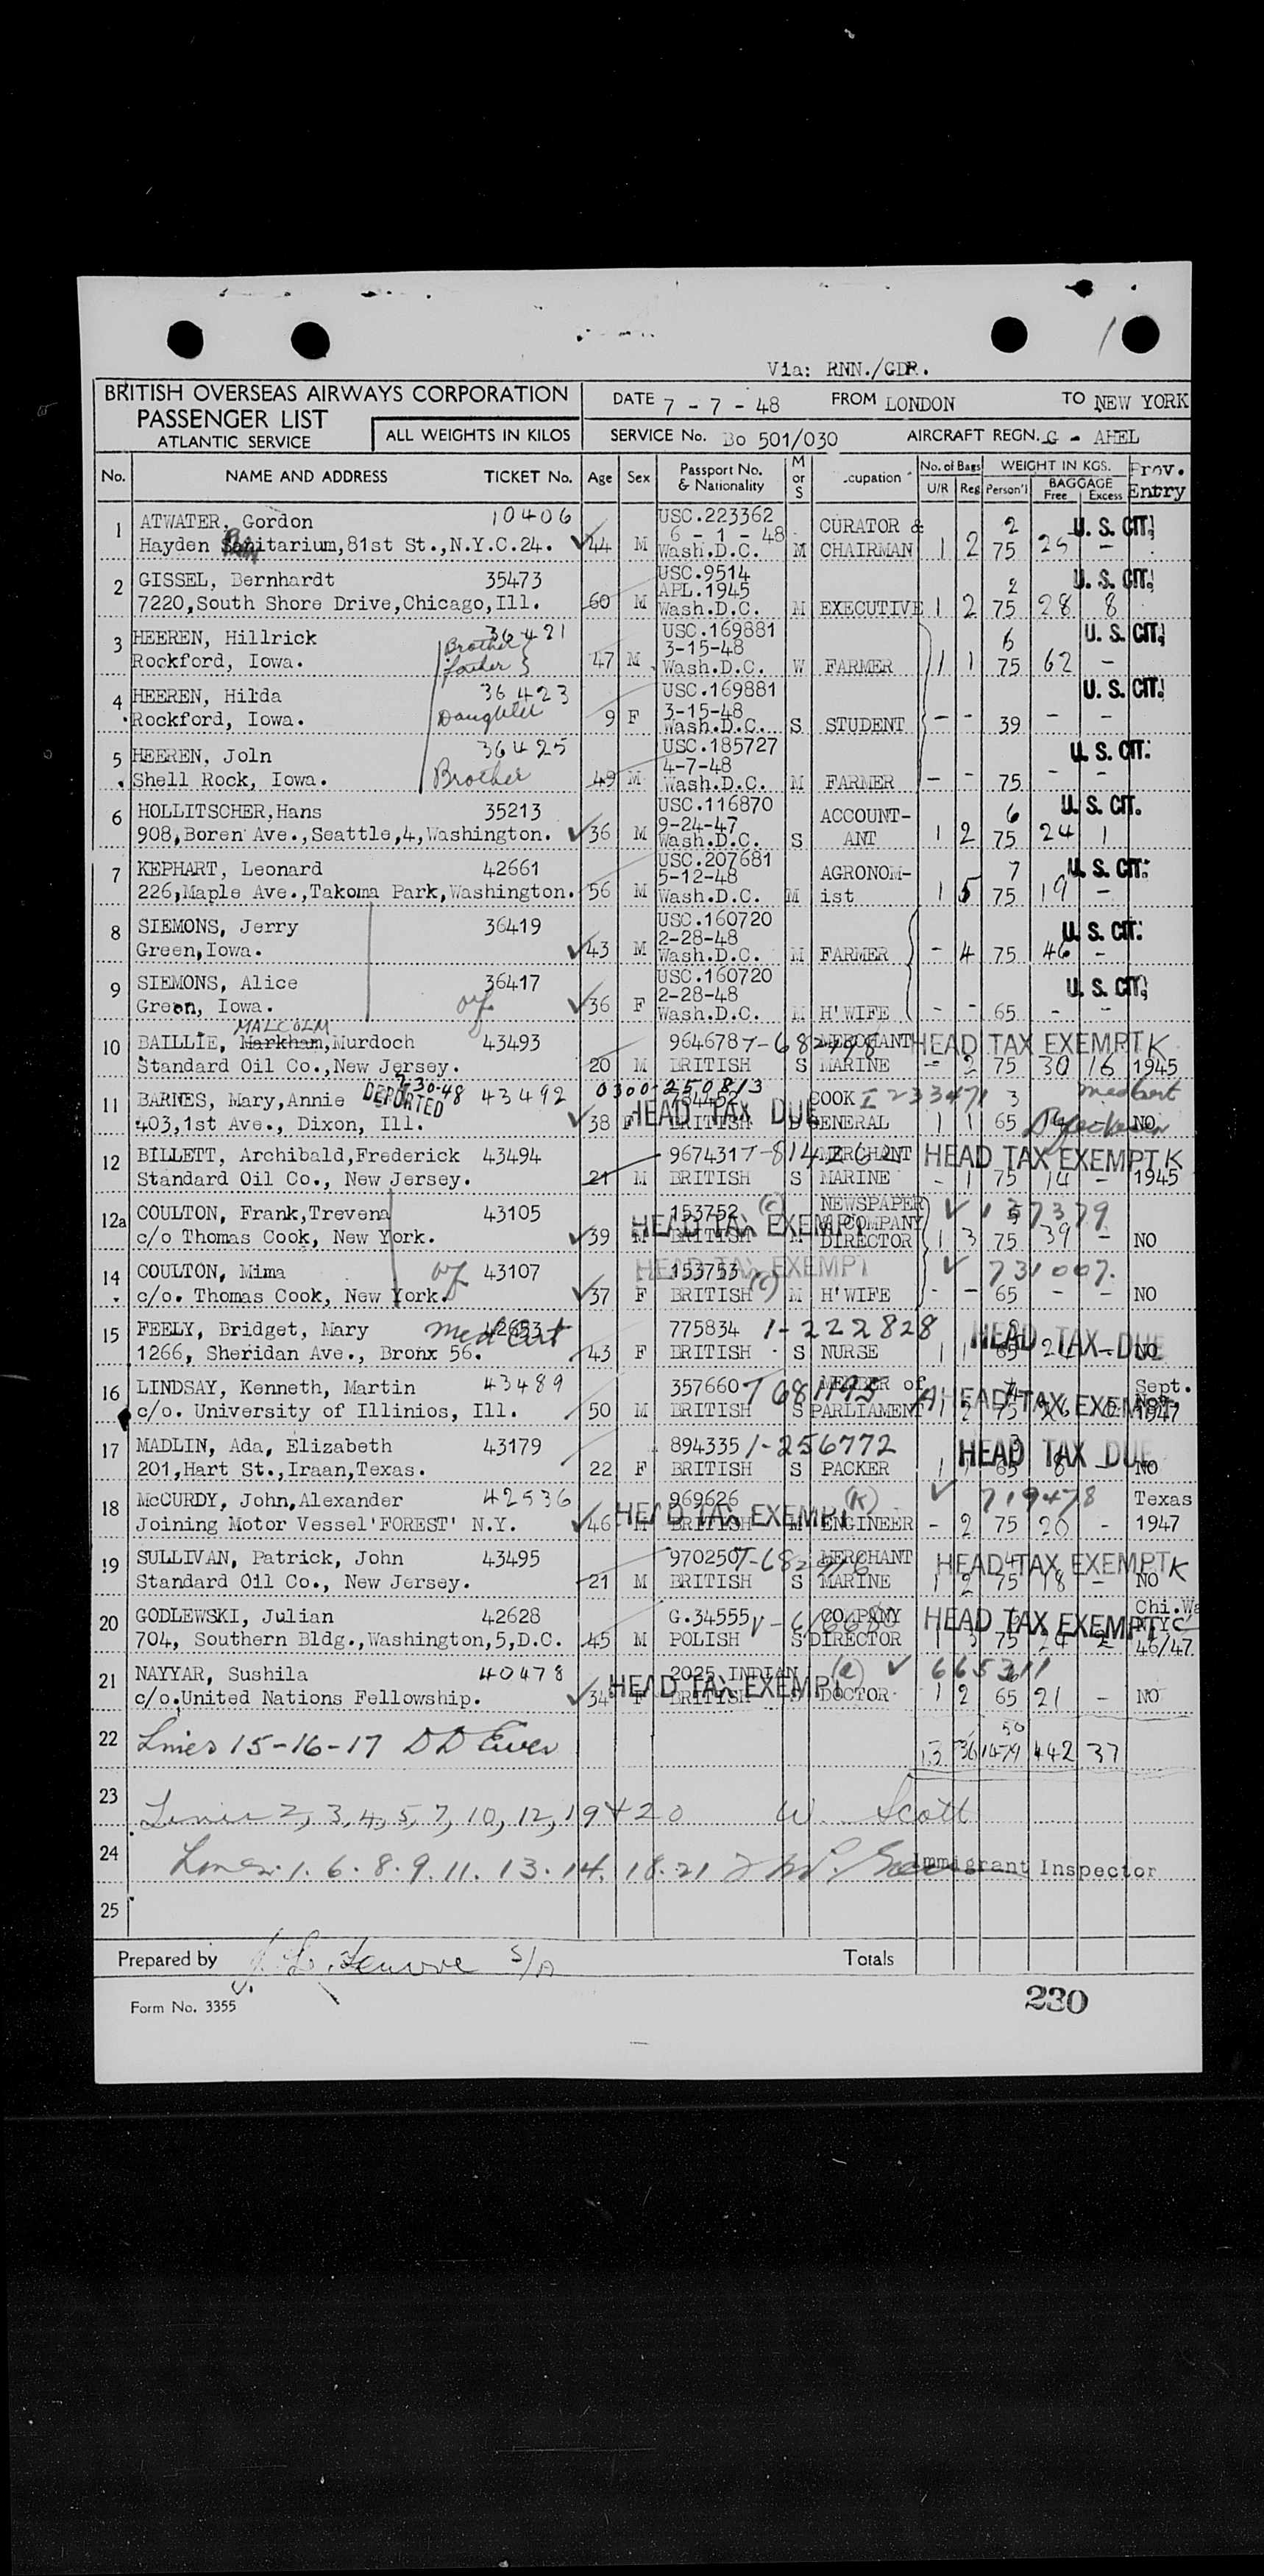 Via: RNN./GDR.
BRITISH OVERSEAS AIRWAYS CORPORATION
PASSENGER LIST
ATLANTIC SERVICE
ALL WEIGHTS IN KILOS
DATE 7 - 7 - 48 FROM LONDON TO NEW YORK
SERVICE No. Bo 501/030 AIRCRAFT REGN. G - AHEL
No. NAME AND ADDRESS TICKET No. Age Sex Passport No. & Nationality M or S cupation No. of Bags U/R Reg WEIGHT IN KGS. Person'l BAGGAGE Free Excess Prov. Entry
1 ATWATER, Gordon 10406 USC.223362 CURATOR & 2 U. S. CIT.
6 - 1 - 48
Hayden Sanitarium,81st St.,N.Y.C.24. 44 M Wash.D.C. M CHAIRMAN 1 2 75 25 -
2 GISSEL, Bernhardt 35473 USC.9514 2 U. S. CIT.
APL.1945
7220,South Shore Drive,Chicago,Ill. 60 M Wash.D.C. M EXECUTIVE 1 2 75 28 8
3 HEEREN, Hillrick 36421 Brother USC.169881 6 U. S. CIT.
3-15-48
Rockford, Iowa. Father 47 M Wash.D.C. W FARMER 1 1 75 62 -
4 HEEREN, Hilda 36423 USC.169881 U. S. CIT.
3-15-48
Rockford, Iowa. Daughter 9 F Wash.D.C. S STUDENT - - 39 - -
5 HEEREN, Joln 36425 USC.185727 U. S. CIT.
4-7-48
Shell Rock, Iowa. Brother 49 M Wash.D.C. M FARMER - - 75 - -
6 HOLLITSCHER,Hans 35213 USC.116870 ACCOUNT- 6 U. S. CIT.
9-24-47
908,Boren Ave.,Seattle,4,Washington. 36 M Wash.D.C. S ANT 1 2 75 24 1
7 KEPHART, Leonard 42661 USC.207681 AGRONOM- 7 U. S. CIT.
5-12-48
226,Maple Ave.,Takoma Park,Washington. 56 M Wash.D.C. M ist 1 5 75 19 -
8 SIEMONS, Jerry 36419 USC.160720 U. S. CIT.
2-28-48
Green,Iowa. 43 M Wash.D.C. M FARMER - 4 75 46 -
9 SIEMONS, Alice 36417 USC.160720 U. S. CIT.
2-28-48
Green, Iowa. 36 F Wash.D.C. M H'WIFE - - 65 - -
MALCOLM
10 BAILLIE, Markham,Murdoch 43493 964678 MERCHANT HEAD TAX EXEMPT K
Standard Oil Co.,New Jersey. 20 M BRITISH S MARINE - 2 75 30 16 1945
7-30-48 0300-250813
11 BARNES, Mary,Annie DEPORTED 43492 COOK I 233471 3 med cert
HEAD TAX DUE
403,1st Ave., Dixon, Ill. 38 F BRITISH GENERAL 1 1 65 NO
12 BILLETT, Archibald,Frederick 43494 967431 MERCHANT HEAD TAX EXEMPT K
Standard Oil Co., New Jersey. 21 M BRITISH S MARINE - 1 75 14 - 1945
12a COULTON, Frank,Trevena 43105 153752 (c) NEWSPAPER
HEAD TAX EXEMPT COMPANY
c/o Thomas Cook, New York. 39 M BRITISH DIRECTOR 1 3 75 39 - NO
14 COULTON, Mima wf 43107 153753 HEAD TAX EXEMPT 731007
c/o. Thomas Cook, New York. 37 F BRITISH (c) M H'WIFE - - 65 - - NO
15 FEELY, Bridget, Mary Med Cert 42653 775834 1-222828 HEAD TAX DUE
1266, Sheridan Ave., Bronx 56. 43 F BRITISH S NURSE 1 1 65 - NO
16 LINDSAY, Kenneth, Martin 43489 357660 T 681193 MEMBER of HEAD TAX EXEMPT Sept.
c/o. University of Illinios, Ill. 50 M BRITISH S PARLIAMENT 1 2 75 1947
17 MADLIN, Ada, Elizabeth 43179 894335 1-256772 HEAD TAX DUE
201,Hart St.,Iraan,Texas. 22 F BRITISH S PACKER 1 1 65 8 - NO
18 McCURDY, John,Alexander 42536 969626 (K) 719478 Texas
HEAD TAX EXEMPT
Joining Motor Vessel'FOREST' N.Y. 46 M BRITISH M ENGINEER - 2 75 20 - 1947
19 SULLIVAN, Patrick, John 43495 970250 MERCHANT HEAD TAX EXEMPT K
Standard Oil Co., New Jersey. 21 M BRITISH S MARINE 1 2 75 18 - NO
20 GODLEWSKI, Julian 42628 G.34555 COMPANY HEAD TAX EXEMPT Chi.Wa
NYC
704, Southern Bldg.,Washington,5,D.C. 45 M POLISH S DIRECTOR 1 3 75 24 2 46/47.
21 NAYYAR, Sushila 40478 2025 INDIAN (a) 665311
HEAD TAX EXEMPT
c/o.United Nations Fellowship. 34 F BRITISH S DOCTOR 1 2 65 21 - NO
50
22 Lines 15-16-17 13 36 1479 442 37
23 Lines 2, 3, 4, 5, 7, 10, 12, 19 + 20 W. Scott
24 Lines. 1. 6. 8. 9. 11. 13. 14. 18. 21 Immigrant Inspector
25
Prepared by S/A Totals
Form No. 3355
230